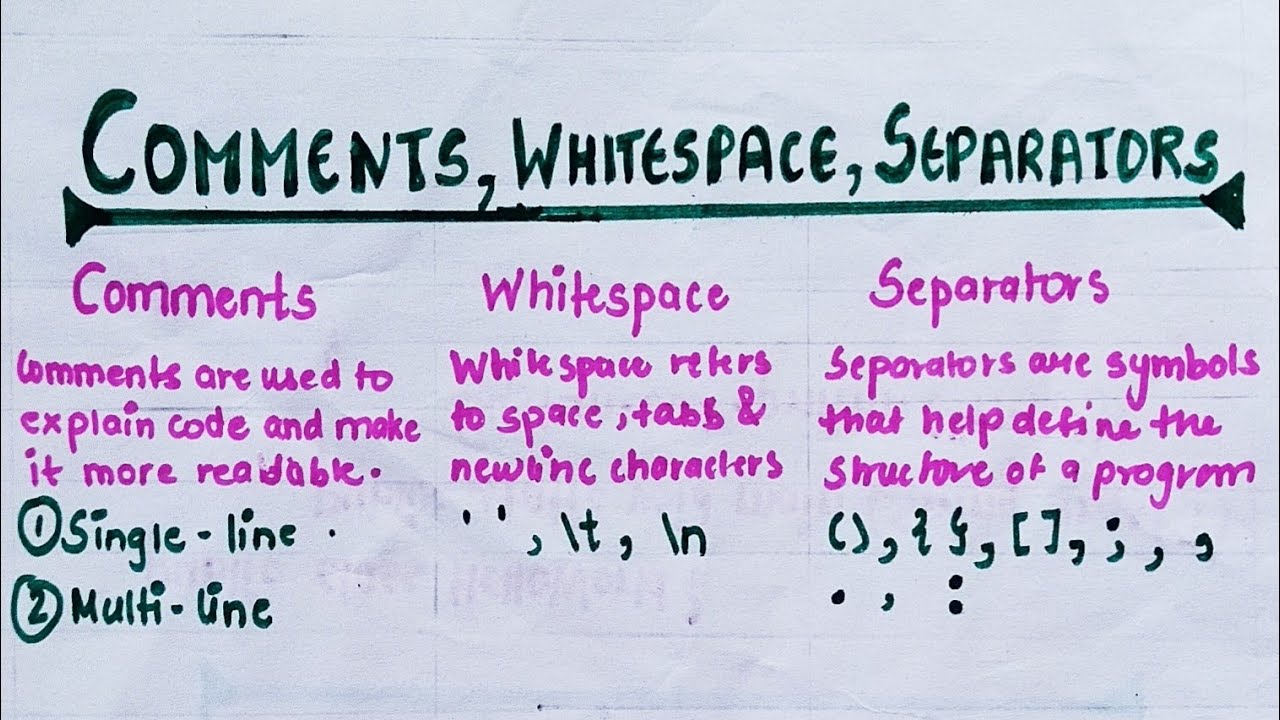 COMMENTS, WHITESPACE, SEPARATORS
Comments
Comments are used to
explain code and make
it more readable.
① Single-line .
② Multi-line
Whitespace
Whitespace refers
to space, tabs &
newline characters
' ', \t, \n
Separators
Separators are symbols
that help define the
structure of a program
(), { }, [ ], ; , ,
. , :